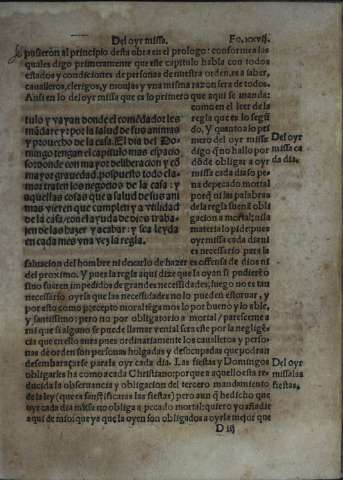 Del oyr missa.
Fo. xxvij.
pusieron al principio desta obra en el prologo: conforme a las
quales digo primeramente que este capitulo habla con todos
estados y condiciones de personas de nuestra orden, es a saber,
caualleros, clerigos, y monjas y vna misma razon sera de todos.
Ansi en lo del oyr missa que es lo primero que aqui se manda:
como en el leer de la
regla que es lo segũ
do. Y quanto a lo pri
mero del oyr misse
digo q̃ no hallo por
dõde obligar a oyr
missa cada dia so pe
na de pecado mortal
porq̃ ni las palabras
de la regla suenã obli
gacion a mortal: ni la
materia lo pide pues
oyr missa cada dia ni
es necessario para la
es offensa de dios ni
Del oyr
missa ca
da dia.
tulo y vayan donde el comẽdador les
mãdare y por la salud de sus animas
y prouecho de la casa. El dia del Do-
mingo tengan el capitulo mas espacio
so donde con mayor deliberacion y cõ
mayor grauedad, pospuesto todo cla-
mor traten los negocios de la casa: y
aquellas cosas que a salud de sus ani
mas vierẽ que cumplen y a vtilidad
de la casa / con el ayuda de dios traba-
jen de las hazer y acabar: y sea leyda
en cada mes vna vez la regla.
saluacion del hombre ni dexarlo de hazer
del proximo. Y pues la regla aqui dize que la oyan si pudierẽ o
sino fueren impedidos de grandes necessidades, luego no es tan
necessario oyrla que las necessidades no lo pueden estoruar, y
por esto como precepto moral tẽgamos lo por bueno y loable,
y sanctissimo: pero no por obligatorio a mortal / paresceme a
mi que si alguno se puede llamar venial sera este por la negligẽ-
cia que en ello aura pues ordinariamente los caualleros y perso-
nas de orden son personas holgadas y desocupadas que podran
desembaraçarse para la oyr cada dia. Las fiestas y Domingos
obligarles ha como a cada Christiano: porque a aquello esta re-
ducida la obseruancia y obligacion del tercero mandamiento
de la ley (que es sanctificaras las fiestas) pero aun q̃ he dicho que
oyr cada dia missa no obliga a peccado mortal: quiero yo añadir
aqui de mio: que ya que la oyen son obligados a oyr la mejor que
Del oyr
missa las
fiestas.
D iij